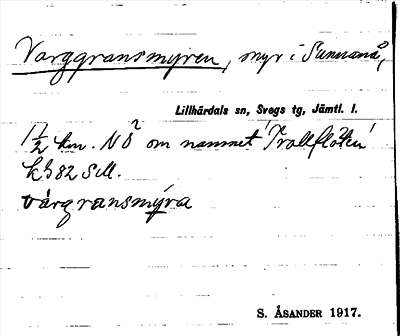 Varggransmyren, myr i Sunnanå,
Lillhärdals sn, Svegs tg, Jämtl. l.
1 1/2 km. NÖ om namnet 'Trollflöten'
k 82 S ill.
vårgransmýra
S. ÅSANDER 1917.